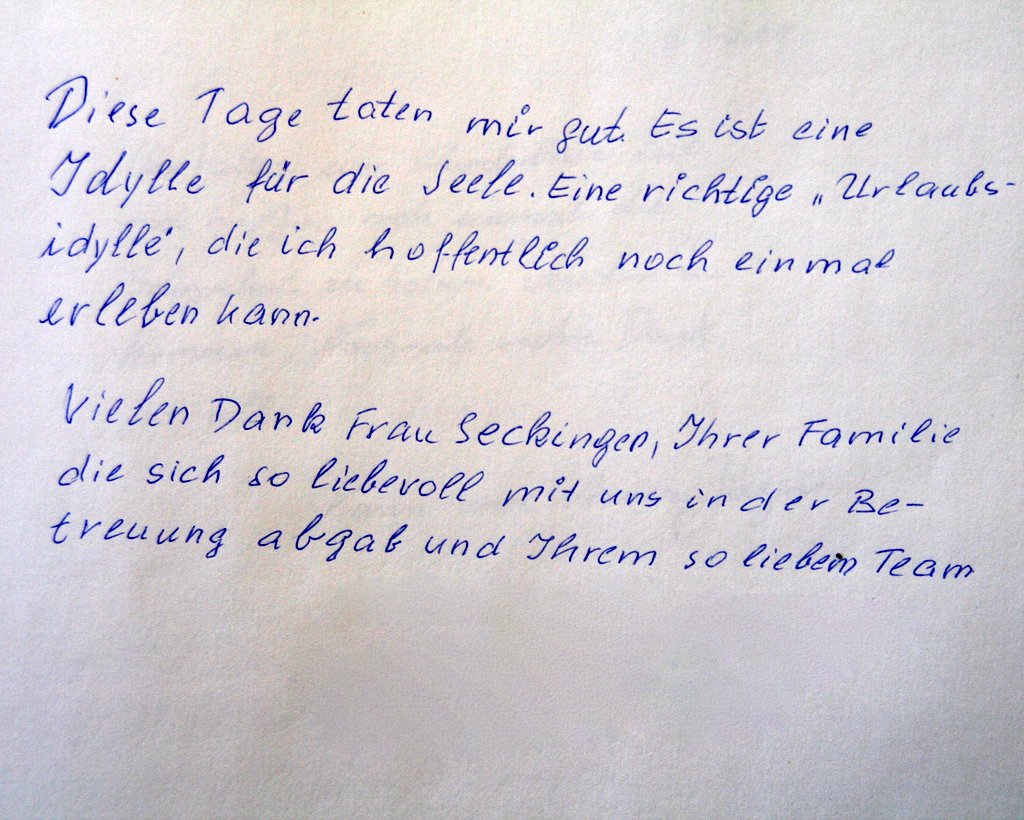 Diese Tage taten mir gut. Es ist eine
Idylle für die Seele. Eine richtige „Urlaubs-
idylle", die ich hoffentlich noch einmal
erleben kann.
Vielen Dank Frau Seckinger, Ihrer Familie
die sich so liebevoll mit uns in der Be-
treuung abgab und Ihrem so lieben Team